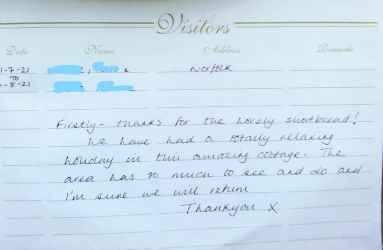 Visitors
Date Name Address Remarks
1-7-21 Norfolk
TO
-8-21
Firstly - thanks for the lovely shortbread!
We have had a totally relaxing
holiday in this amazing cottage. The
area has so much to see and do and
I'm sure we will return
Thankyou X